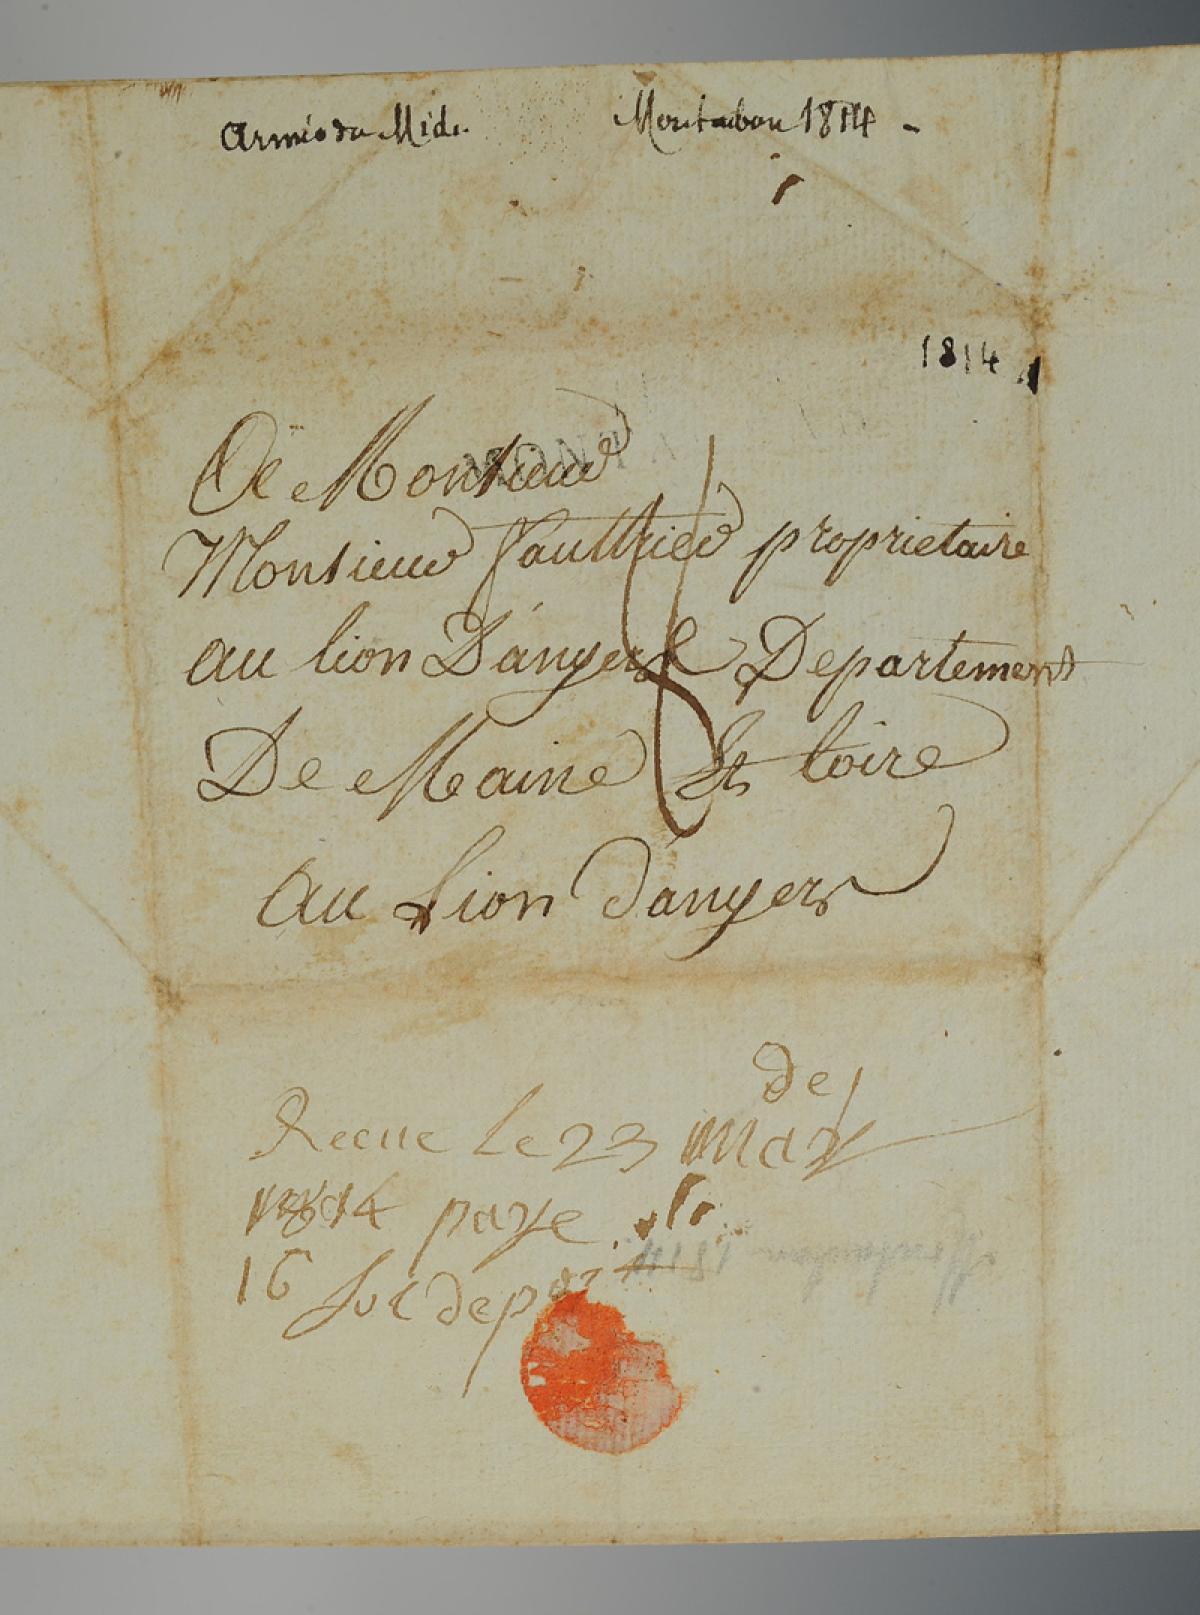 Armée du Midi. Montauban 1814 -
1814
A Monsieur
Monsieur Gaultier proprietaire
au lion D'angers Departement
De Maine Et loire
au Lion d'angers
de
Recue le 23 may
1814 paye
16 sol de port
Montauban 1814